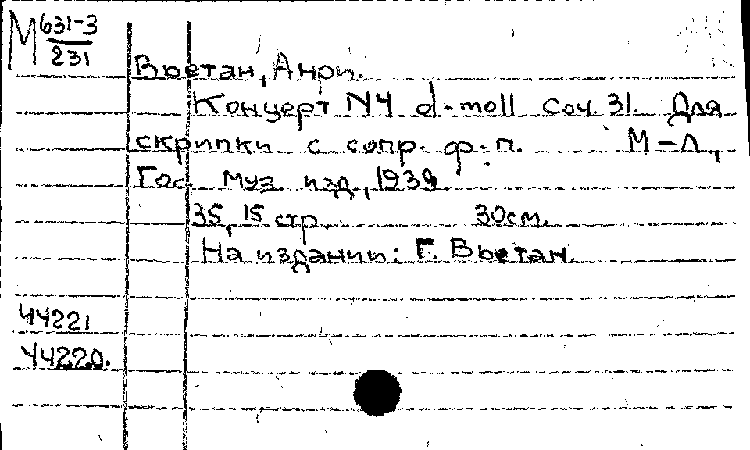 М 631-3
231
Вьетан, Анри.
Концерт N4 d-moll соч. 31. Для
скрипки с сопр. ф-п. М-Л,
Гос. муз. изд., 1939
35, 15 стр. 30см.
На издании: Г. Вьетан.
44221
44220.